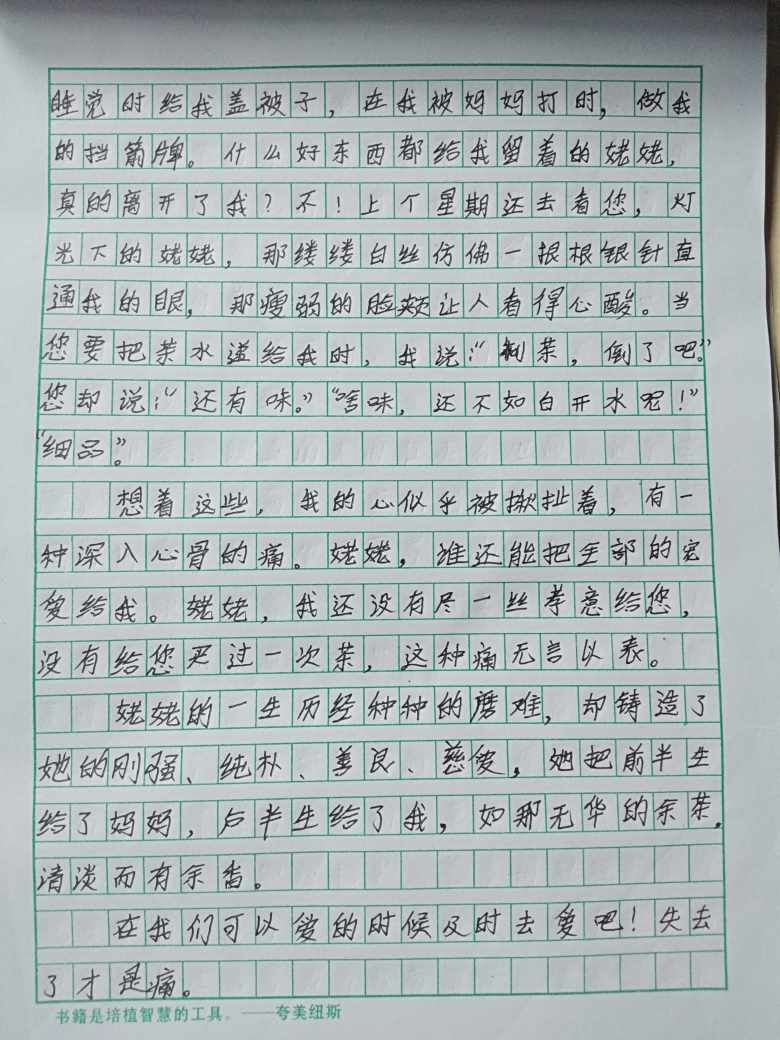 睡觉时给我盖被子，在我被妈妈打时，做我
的挡箭牌。什么好东西都给我留着的姥姥，
真的离开了我？不！上个星期还去看您，灯
光下的姥姥，那缕缕白丝仿佛一根根银针直
通我的眼，那瘦弱的脸颊让人看得心酸。当
您要把茶水递给我时，我说：“剩茶，倒了吧。”
您却说：“还有味。”“啥味，还不如白开水呢！”
“细品”。
想着这些，我的心似乎被揪扯着，有一
种深入心骨的痛。姥姥，谁还能把全部的宠
爱给我。姥姥，我还没有尽一丝孝意给您，
没有给您买过一次茶，这种痛无言以表。
姥姥的一生历经种种的磨难，却铸造了
她的刚强、纯朴、善良、慈爱，她把前半生
给了妈妈，后半生给了我，如那无华的余茶，
清淡而有余香。
在我们可以爱的时候及时去爱吧！失去
了才是痛。
书籍是培植智慧的工具。——夸美纽斯